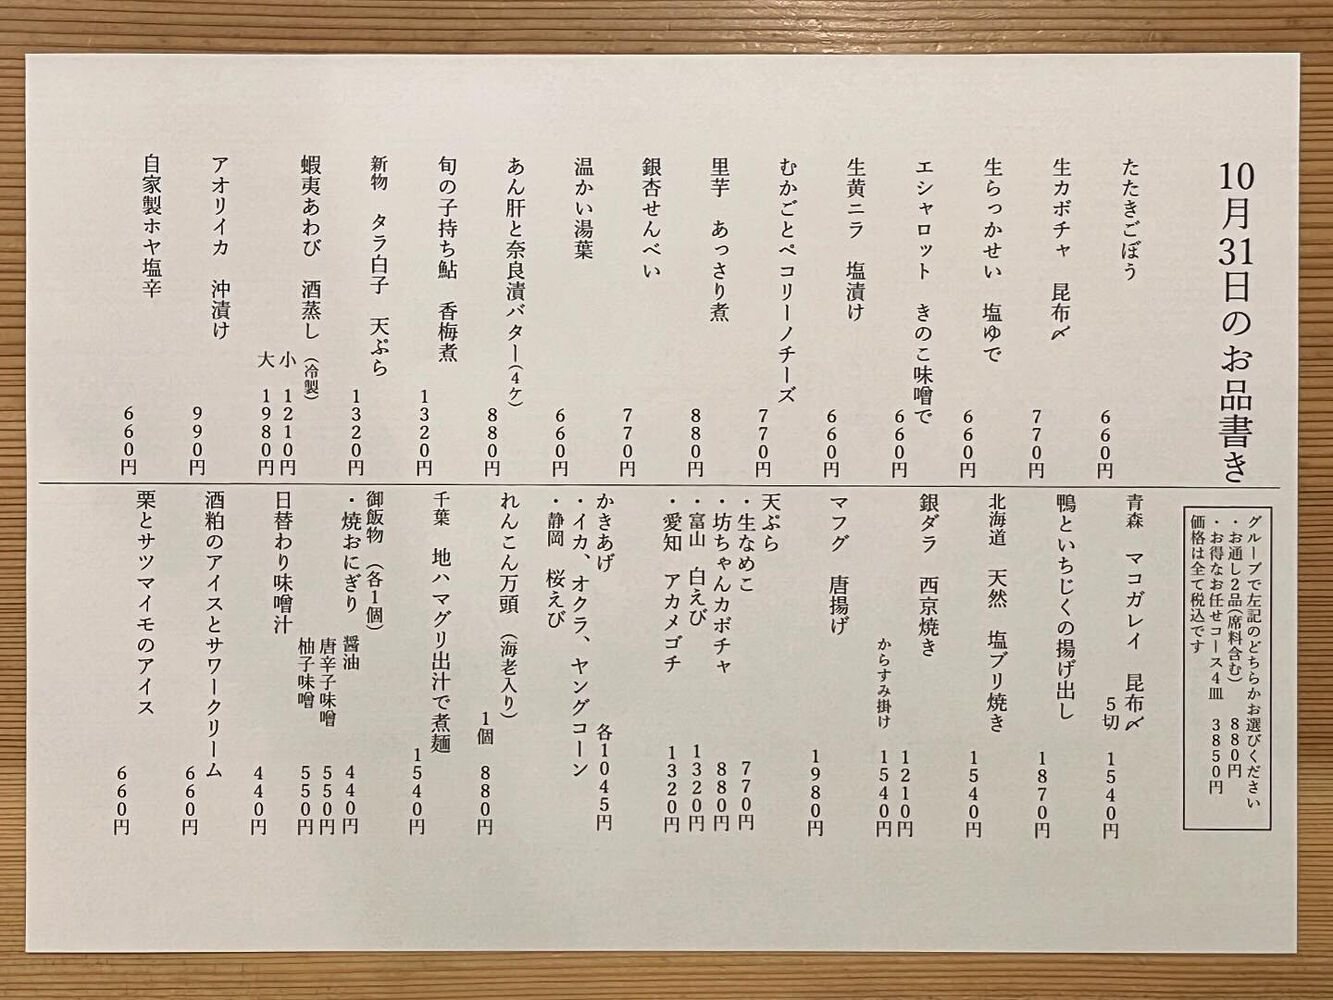 10月31日のお品書き
たたきごぼう 660円
生カボチャ 昆布〆 770円
生らっかせい 塩ゆで 660円
エシャロット きのこ味噌で 660円
生黄ニラ 塩漬け 660円
むかごとペコリーノチーズ 770円
里芋 あっさり煮 880円
銀杏せんべい 770円
温かい湯葉 660円
あん肝と奈良漬バター(4ケ) 880円
旬の子持ち鮎 香梅煮 1320円
新物 タラ白子 天ぷら 1320円
蝦夷あわび 酒蒸し (冷製)
小 1210円
大 1980円
アオリイカ 沖漬け 990円
自家製ホヤ塩辛 660円
グループで左記のどちらかお選びください
・お通し2品(席料含む) 880円
・お得なお任せコース4皿 3850円
価格は全て税込です
青森 マコガレイ 昆布〆
5切 1540円
鴨といちじくの揚げ出し 1870円
北海道 天然 塩ブリ焼き 1540円
銀ダラ 西京焼き 1210円
からすみ掛け 1540円
マフグ 唐揚げ 1980円
天ぷら
・生なめこ 770円
・坊ちゃんカボチャ 880円
・富山 白えび 1320円
・愛知 アカメゴチ 1320円
かきあげ 各1045円
・イカ、オクラ、ヤングコーン
・静岡 桜えび
れんこん万頭 (海老入り)
1個 880円
千葉 地ハマグリ出汁で煮麺 1540円
御飯物 (各1個)
・焼おにぎり 醤油 440円
唐辛子味噌 550円
柚子味噌 550円
日替わり味噌汁 440円
酒粕のアイスとサワークリーム 660円
栗とサツマイモのアイス 660円